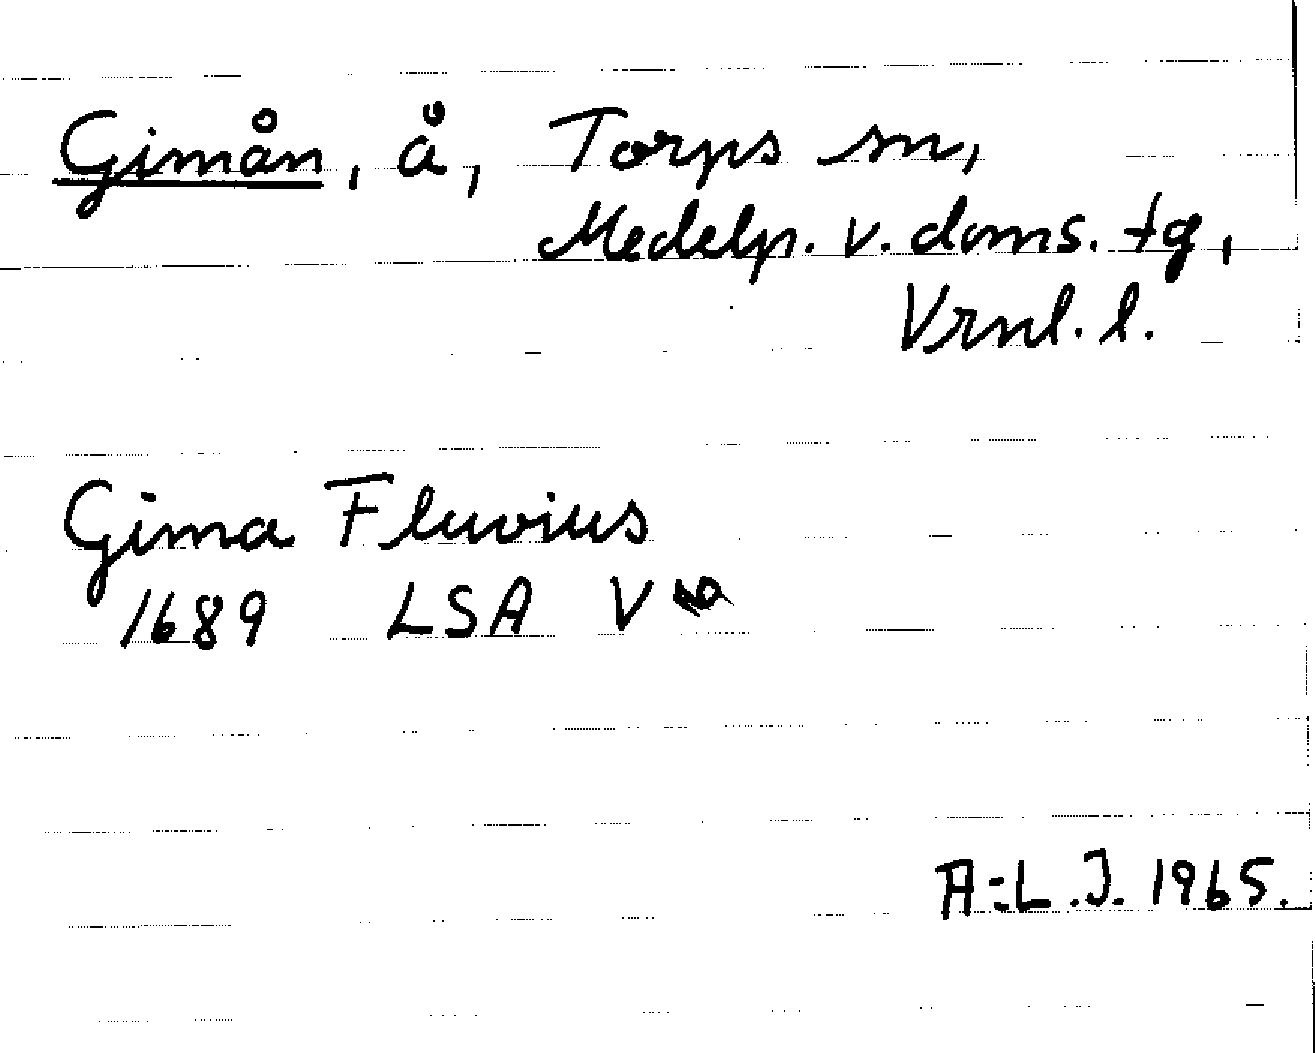 Gimån, å, Torps sn,
Medelp. v. doms. tg,
Vrnl. l.
Gima Fluvius
1689 LSA V
A:L.J. 1965.